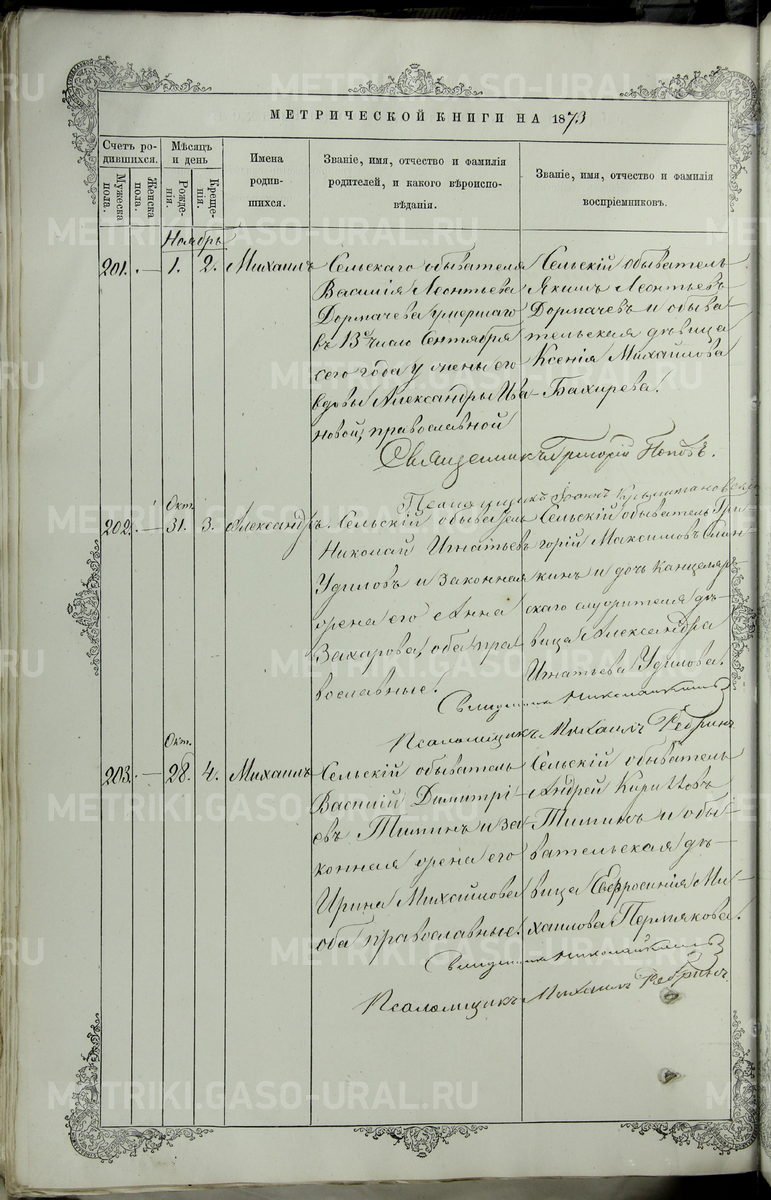 МЕТРИЧЕСКОЙ КНИГИ НА 1873
Счетъ родившихся.
Мужеска пола.
Женска пола.
Мѣсяцъ и день
Рожденія.
Крещенія.
Имена родившихся.
Званіе, имя, отчество и фамилія
родителей, и какого вѣроисповѣданія.
Званіе, имя, отчество и фамилія
воспріемниковъ.
Ноябрь
201. — 1. 2. Михаилъ
Сельскаго обывателя
Василія Леонтьева
Дормачева умершаго
въ 13е число Сентября
сего года у жены его
вдовы Александры Ива-
новой, православной
Сельскій обыватель
Якимъ Леонтьевъ
Дормачевъ и обыва
тельская дѣвица
Ксенія Михайлова
Бахирева.
Священникъ Григорій Поповъ.
Псаломщикъ
Окт.
202. — 31. 3. Александръ.
Сельскій обыватель
Николай Игнатьевъ
Удиловъ и законная
жена его Анна
Захарова, оба пра
вославные.
Сельскій обыватель Гри
горій Максимовъ
кинъ и дочь Канцеляр
скаго служителя дѣ-
вица Александра
Игнатьева Удилова.
Священникъ
Псаломщикъ Михаилъ Ребринъ
Окт.
203. — 28. 4. Михаилъ
Сельскій обыватель
Василій Димитрі-
евъ Тиминъ и за
конная жена его
Ирина Михайлова
оба православные.
Сельскій обыватель
Андрей Кирилловъ
Тиминъ и обы
вательская дѣ-
вица Евфросинія Ми-
хаилова Пермякова.
Священникъ
Псаломщикъ Михаилъ Ребринъ.
METRIKI.GASO-URAL.RU